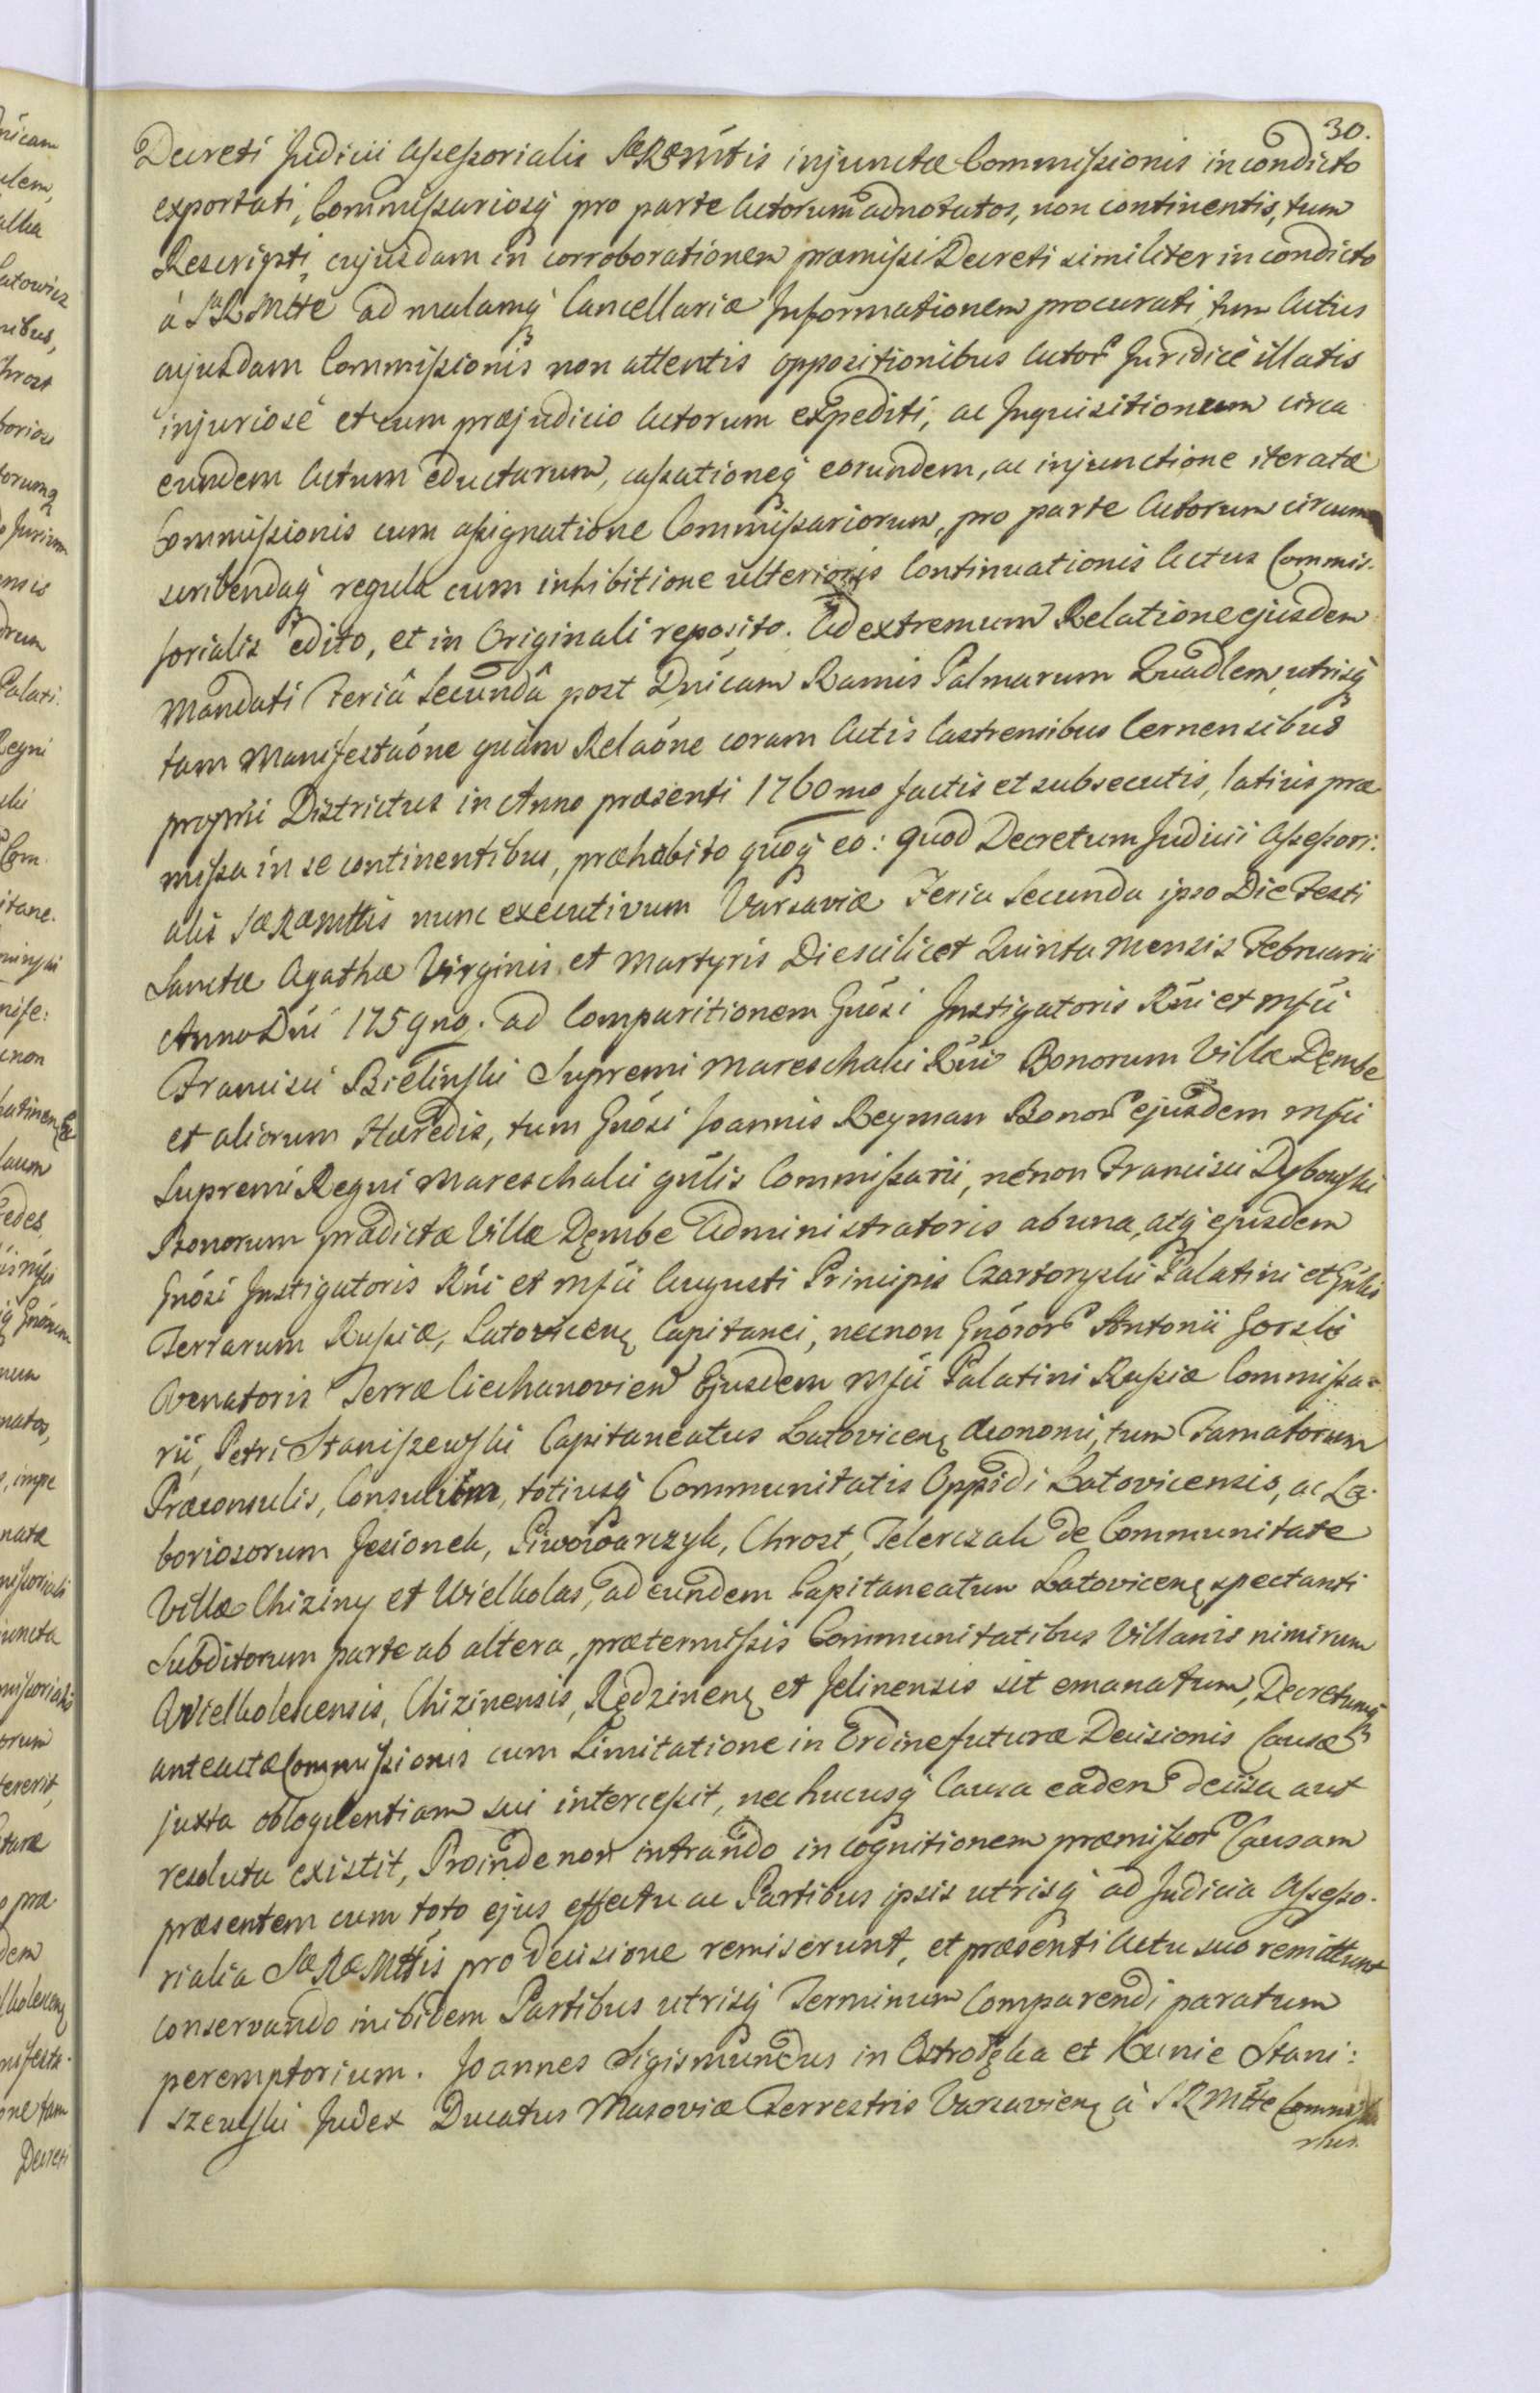 30.
Decreti Judicii Assessorialis SæRæMttis injunctæ Commissionis in condicto
exportati, Commissariosq̃ pro parte Actorum adnotatos, non continentis, tum
Rescripti, cujusdam in corroborationem præmissi Decreti similiter in condicto
á SaRMtte ad malamq̃ Cancellariæ Informationem procurati, tum Actus
cujusdam Commissionis non attentis oppositionibus Actor̃ Juridicè illatis
injuriosè et cum præjudicio Actorum expediti, ac Inquisitionum circa
eundem Actum eductarum, cassationeq̃ eorundem, ac injunctione iteratæ
Commissionis cum assignatione Commissariorum, pro parte Actorum circum
scribendaq̃ regula cum inhibitione ulterioris Continuationis Actus Commis-
sorialis edito, et in Originali reposito. Ad extremum Relatione ejusdem
Mandati Feriâ Secundâ post Dn̄icam Ramis Palmarum Quadlem, utrisq̃
tam Manifestaõne quàm Relaõne coram Actis Castrensibus Cernensibus
proprii Districtus in Anno præsenti 1760mo factis et subsecutis, latius præ
missa in se continentibus, præhabito quoq̃ eo: quod Decretum Judicii Assessori:
alis SæRæMttis nunc executivum Varsaviæ Feria Secunda ipso Die Festi
Sanctæ Agathæ Virginis et Martyris Die scilicet Quinta Mensis Februarii
Anno Dn̄i 1759no. ad Comparitionem Gn̄osi Instigatoris Rn̄i et Mf̄ci
Francisci Bielinski Supremi Mareschalci Rn̄i Bonorum Villæ Dęmbe
et aliorum Hæredis, tum Gn̄osi Joannis Reyman Bonor̃ ejusdem Mf̄ci
Supremi Regni Mareschalci gn̄lis Commissarii, nénon Francisci Dybowski
Bonorum prædictæ Villæ Dęmbe Administratoris ab una, atq̃ ejusdem
Gn̄osi Instigatoris Rn̄i et Mf̄ci Augusti Principis Czartoryski Palatini et Gn̄lis
Terrarum Russiæ, Latovicen̄ Capitanei, necnon Gn̄osor̃ Antonii Gorski
Venatoris Terræ Ciechanovien̄ Ejusdem Mf̄ci Palatini Russiæ Commissa-
rii, Petri Staniszewski Capitaneatus Latovicen̄ Œconomi, tum Famatorum
Præconsulis, Consulum, totiusq̃ Communitatis Oppidi Latovicensis, ac La-
boriosorum Jesionek, Piwowarczyk, Chrost, Telerczak de Communitate
Villæ Chiziny et Wielholas, ad eundem Capitaneatum Latovicen̄ spectanti
Subditorum parte ab altera, prætermissis Communitatibus Villanis nimirum
Wielholescensis, Chizinensis, Rędzinen̄ et Jelinensis sit emanatum, Decretumq̃
anteactæ Commissionis cum Limitatione in Ordine futuræ Decisionis Causæ
juxta obloquentiam sui intercessit, nec hucusq̃ Causa eadem decisa aut
resoluta existit, Proinde non intrando in cognitionem præmissor̃ Causam
præsentem cum toto ejus effectu ac Partibus ipsis utrisq̃ ad Judicia Assesso-
rialia SæRæMttis pro decisione remiserunt, et præsenti Actu suo remittunt
conservando inibidem Partibus utrisq̃ Terminum Comparendi paratum
peremptorium. Joannes Sigismundus in Ostrołęka et Kunie Stani:
szewski Judex Ducatus Masoviæ Terrestris Varsavien̄ à SRMtte Commissa
rius.